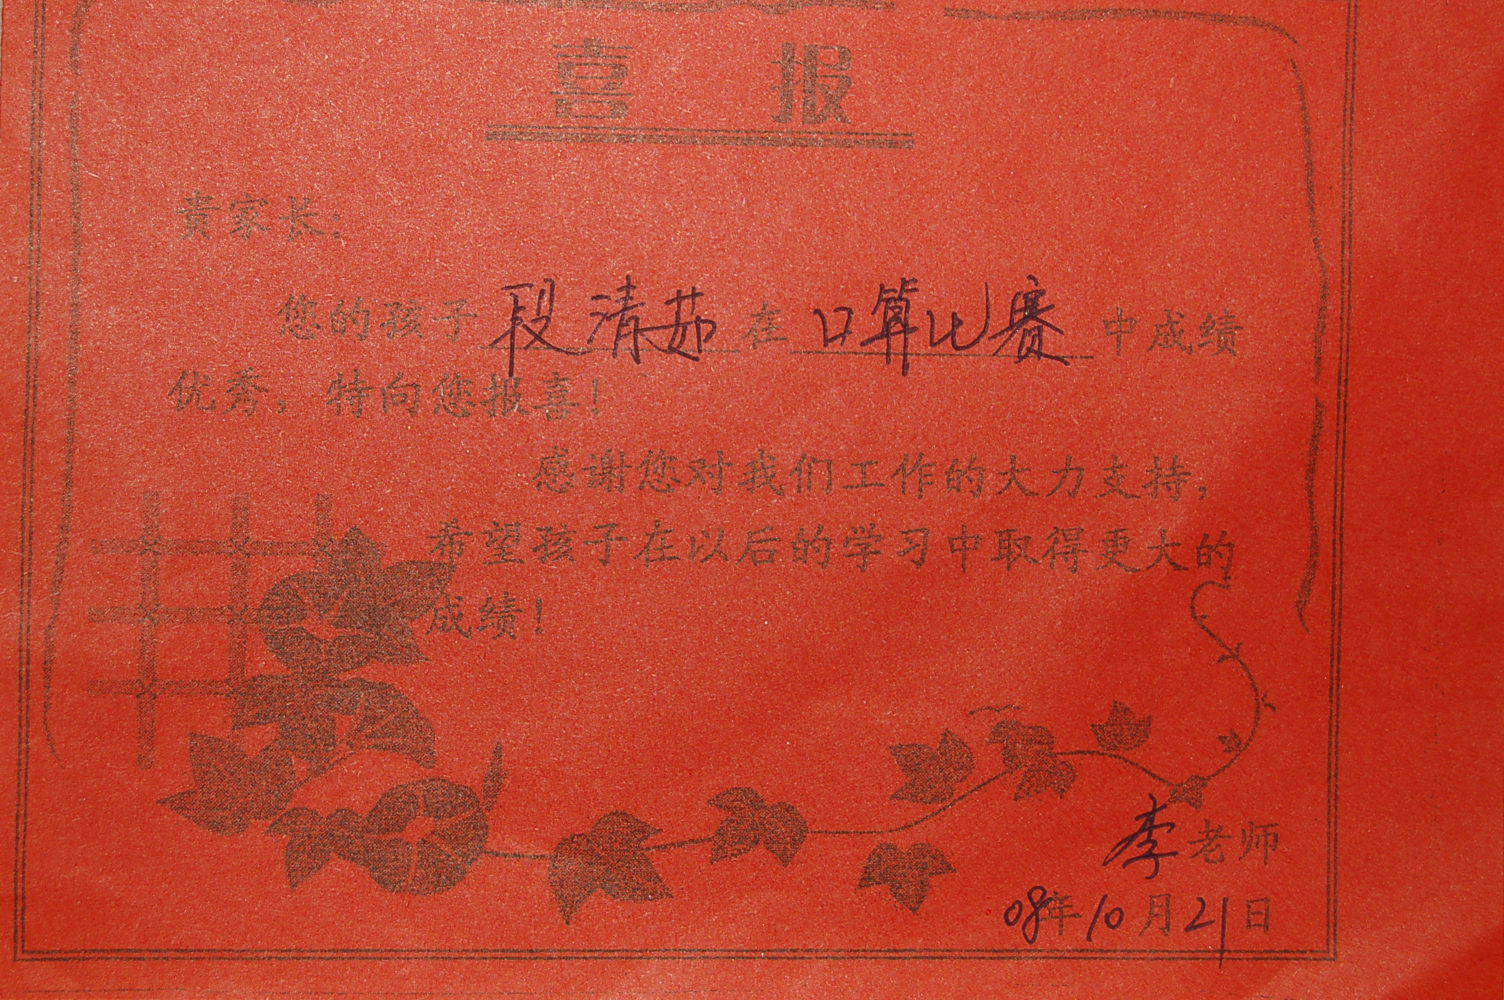 喜 报
贵家长:
您的孩子 段清茹 在 口算比赛 中成绩
优秀，特向您报喜！
感谢您对我们工作的大力支持，
希望孩子在以后的学习中取得更大的
成绩！
李老师
08年10月21日